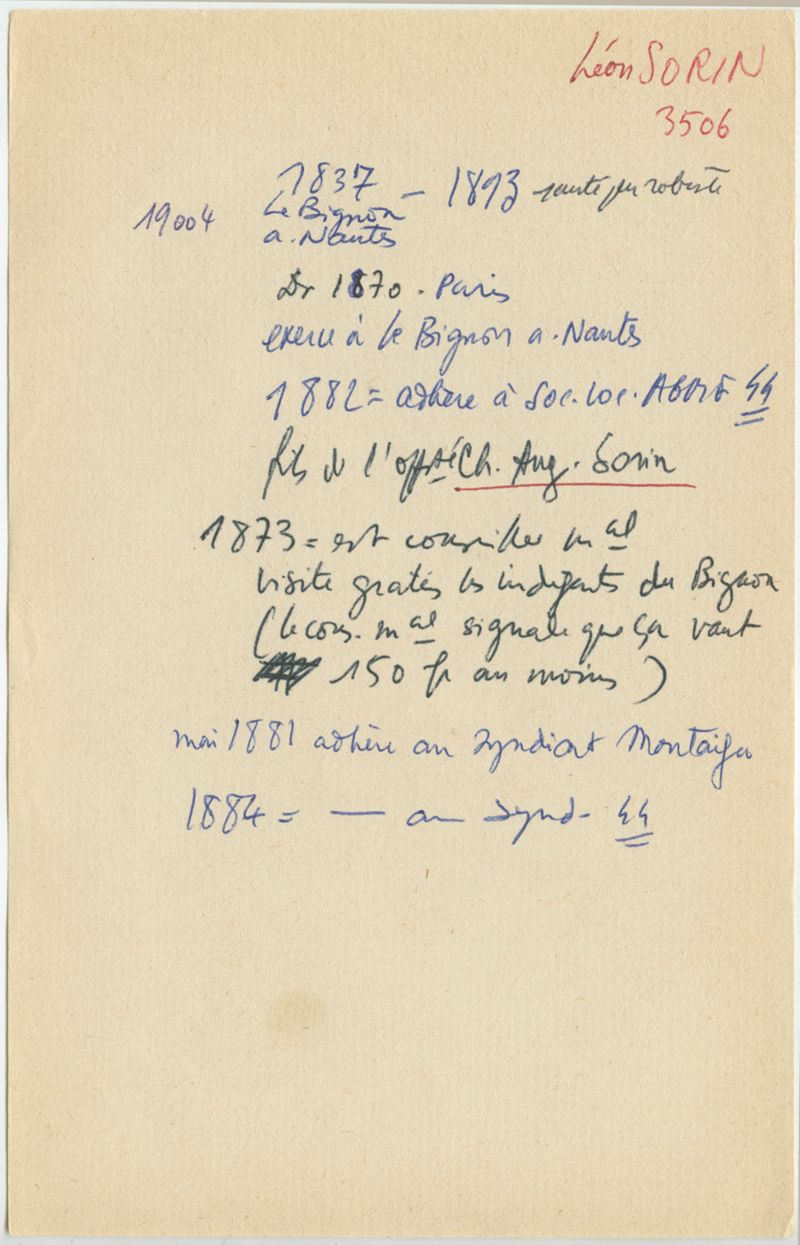 Léon SORIN
3506
1837 – 1893 santé peu robuste
19004 Le Bignon
a. Nantes
Dr 1870 . Paris
exerce à le Bignon a. Nantes
1882 = adhère à Soc. loc. 44
fils de l'off. Ch. Aug. Sorin
1873 = est conseiller mal
visite gratis les indigents du Bignon
(le cons. mal signale que ça vaut
150 fr au moins)
mai 1881 adhère au syndicat Montaigu
1884 = — au synd. 44